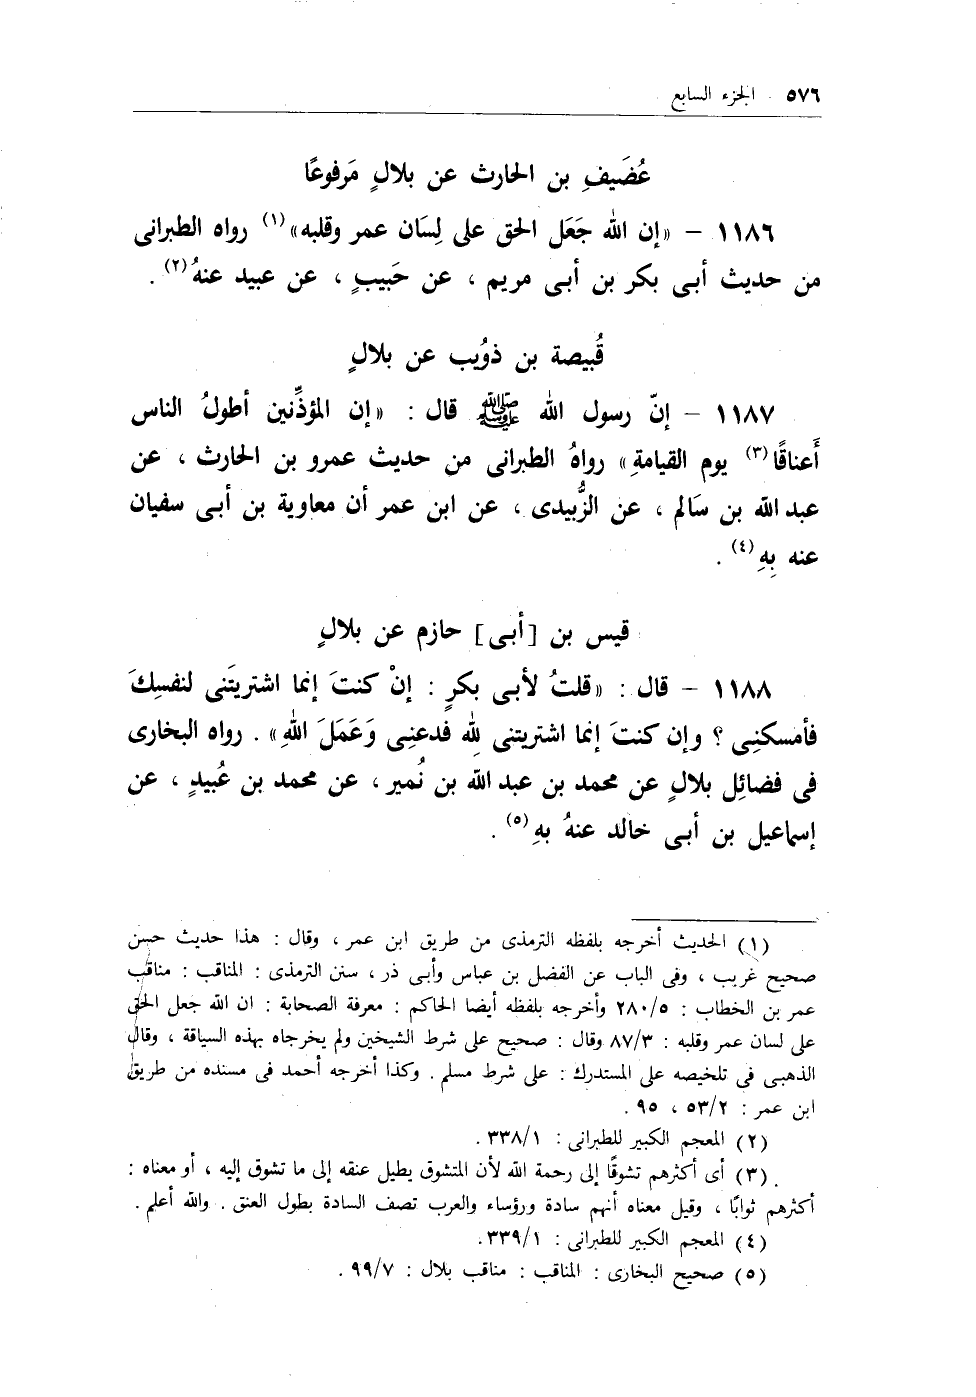 ٥٧٦ الجزء السابع
عُضَيفِ بن الحارث عن بلالٍ مَرفوعًا
١١٨٦ – «إن الله جَعَل الحق على لِسَان عمر وقلبه»(١) رواه الطبرانى
من حديث أبى بكر بن أبى مريم ، عن حَبيبٍ ، عن عبيد عنهُ(٢) .
قُبيصة بن ذوُيب عن بلالٍ
١١٨٧ – إنّ رسول الله ﷺ قال : «إن المؤذِّنين أطولُ الناس
أَعناقًا(٣) يوم القيامةِ» رواهُ الطبرانى من حديث عمرو بن الحارث ، عن
عبد الله بن سَالم ، عن الزُّبيدى ، عن ابن عمر أن معاوية بن أبى سفيان
عنه بِهِ(٤) .
قيس بن [أبى] حازم عن بلالٍ
١١٨٨ – قال : «قلتُ لأبى بكرٍ : إنْ كنتَ إنما اشتريتَنى لنفسِكَ
فأمسكنِى ؟ وإن كنتَ إنما اشتريتنى لله فدعنِى وَعَمَلَ اللهِ» . رواه البخارى
فى فضائِل بلالٍ عن محمد بن عبد الله بن نُمير ، عن محمد بن عُبيدٍ ، عن
إسماعيل بن أبى خالد عنهُ بهِ(٥) .
(١) الحديث أخرجه بلفظه الترمذى من طريق ابن عمر ، وقال : هذا حديث حسن
صحيح غريب ، وفى الباب عن الفضل بن عباس وأبى ذر ، سنن الترمذى : المناقب : مناقب
عمر بن الخطاب : ٢٨٠/٥ وأخرجه بلفظه أيضا الحاكم : معرفة الصحابة : ان الله جعل الحق
على لسان عمر وقلبه : ٨٧/٣ وقال : صحيح على شرط الشيخين ولم يخرجاه بهذه السياقة ، وقال
الذهبى فى تلخيصه على المستدرك : على شرط مسلم . وكذا أخرجه أحمد فى مسنده من طريق
ابن عمر : ٥٣/٢ ، ٩٥ .
(٢) المعجم الكبير للطبرانى : ٣٣٨/١ .
(٣) أى أكثرهم تشوقًا إلى رحمة الله لأن المتشوق يطيل عنقه إلى ما تشوق إليه ، أو معناه :
أكثرهم ثوابًا ، وقيل معناه أنهم سادة ورؤساء والعرب تصف السادة بطول العنق . والله أعلم .
(٤) المعجم الكبير للطبرانى : ٣٣٩/١ .
(٥) صحيح البخارى : المناقب : مناقب بلال : ٩٩/٧ .